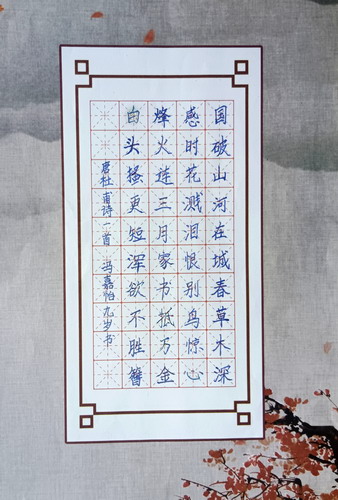 国破山河在城春草木深
感时花溅泪恨别鸟惊心
烽火连三月家书抵万金
白头搔更短浑欲不胜簪
唐杜甫诗一首 冯嘉怡九岁书